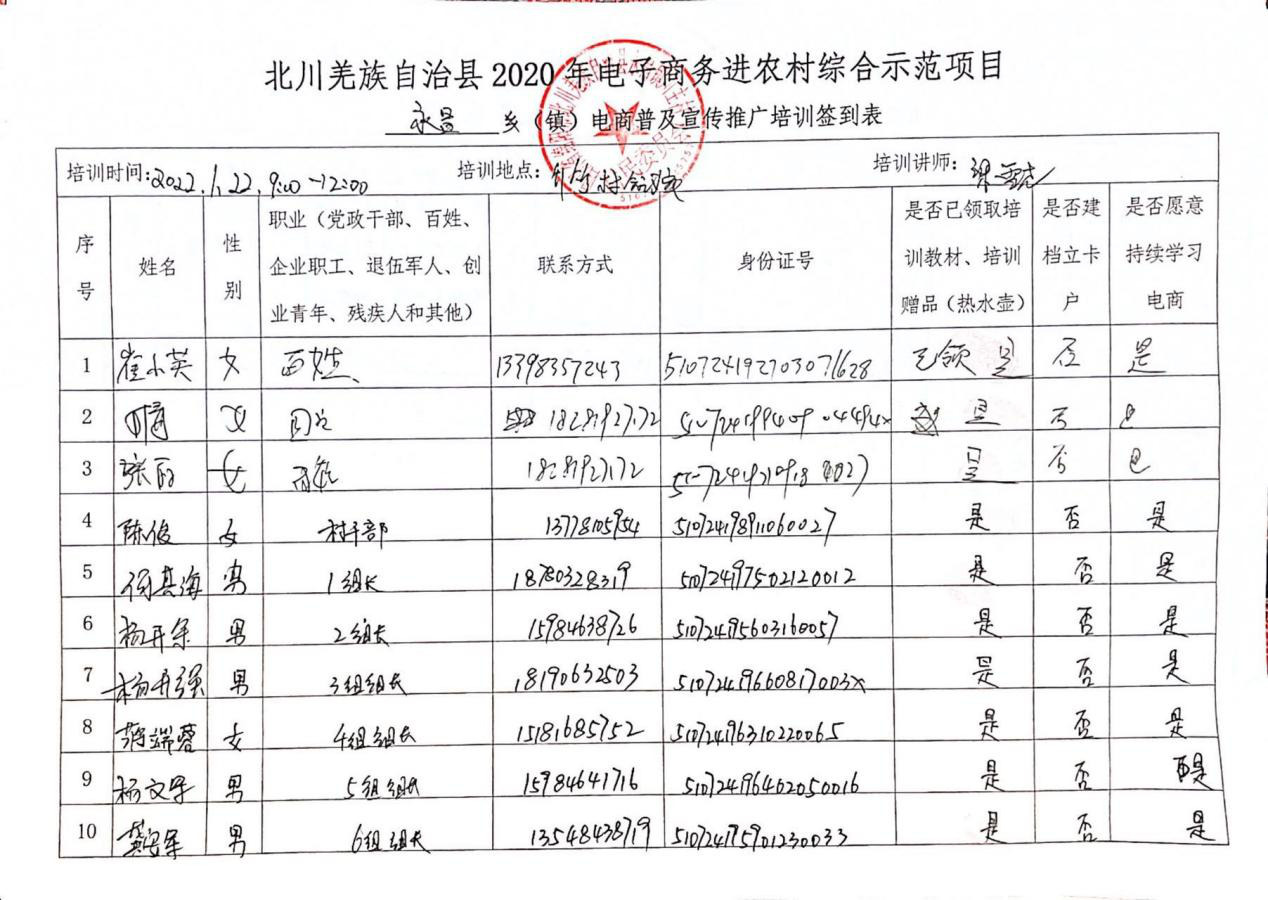 北川羌族自治县 2020 年电子商务进农村综合示范项目
永昌 乡（镇）电商普及宣传推广培训签到表
培训时间:2022.1.22. 9:00-12:00 培训地点: 培训讲师:
序号 姓名 性别 职业（党政干部、百姓、企业职工、退伍军人、创业青年、残疾人和其他） 联系方式 身份证号 是否已领取培训教材、培训赠品（热水壶） 是否建档立卡户 是否愿意持续学习电商
1 崔小英 女 百姓 13398357243 已领 是 否 是
2 女 是 否
3 女 是 否
4 陈俊 女 村干部 13778105954 510724198911060027 是 否 是
5 男 1组长 18780328319 510724197502120012 是 否 是
6 杨开军 男 2组长 15984638726 510724195603160057 是 否 是
7 杨开强 男 3组组长 18190632503 51072419660817003x 是 否 是
8 蒋端蓉 女 4组组长 15181685752 510724196310220065 是 否 是
9 杨文军 男 5组组长 15984641716 510724196402050016 是 否 是
10 男 6组组长 13548438719 510724175901230033 是 否 是